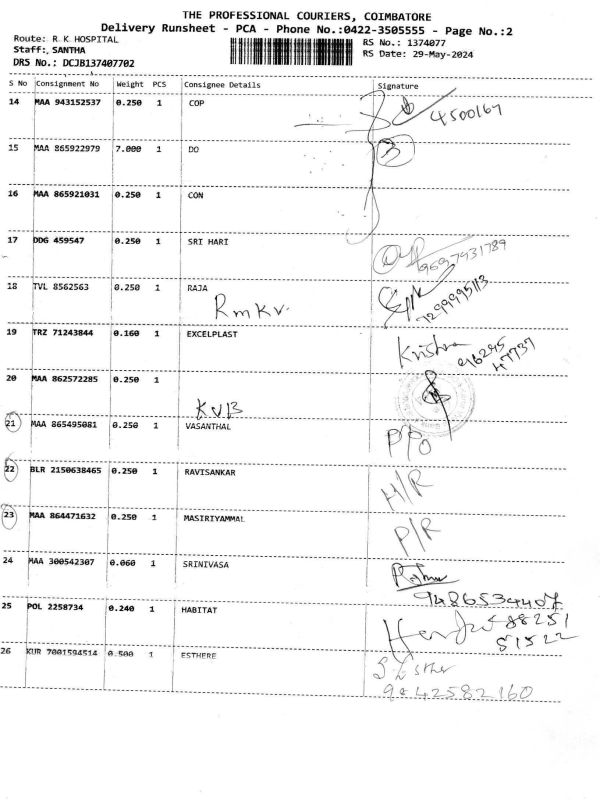 THE PROFESSIONAL COURIERS, COIMBATORE
Delivery Runsheet - PCA - Phone No.:0422-3505555 - Page No.:2
Route: R K HOSPITAL RS No.: 1374077
Staff: SANTHA RS Date: 29-May-2024
DRS No.: DCJB137407702
S No Consignment No Weight PCS Consignee Details Signature
14 MAA 943152537 0.250 1 COP 4500167
15 MAA 865922979 7.000 1 DO 3
16 MAA 865921031 0.250 1 CON
17 DDG 459547 0.250 1 SRI HARI 9697931789
18 TVL 8562563 0.250 1 RAJA
RmKV. 7299995113
19 TRZ 71243844 0.160 1 EXCELPLAST Krishna
20 MAA 862572285 0.250 1
KVB
21 MAA 865495081 0.250 1 VASANTHAL P/O
22 BLR 2150638465 0.250 1 RAVISANKAR H/R
23 MAA 864471632 0.250 1 MASIRIYAMMAL P/R
24 MAA 300542307 0.060 1 SRINIVASA
9486534407
25 POL 2258734 0.240 1 HABITAT 88251
51522
26 KUR 7001594514 0.500 1 ESTHERE S Esther
9842582160